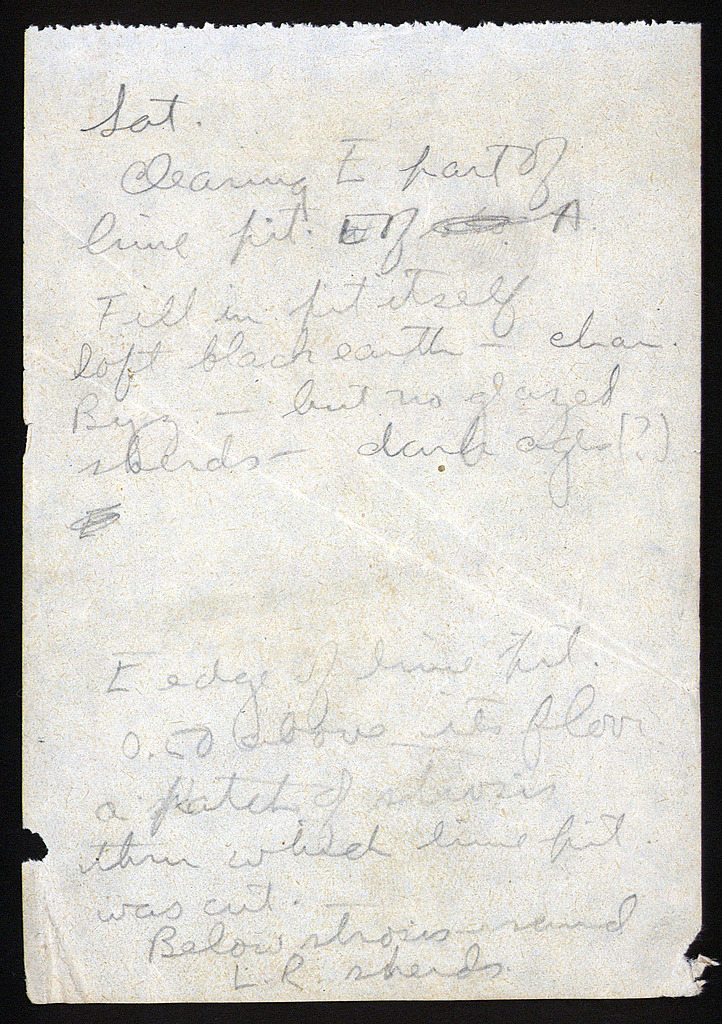 Sat.
Clearing E part of
lime pit. E of A.
Fill in pit itself
soft black earth – char.
Byz – but no glazed
sherds – dark ages (?)
E edge of lime pit.
0.50 above its floor
a patch of strosis
thru which lime pit
was cut.
Below strosis – sand
L.R. sherds.